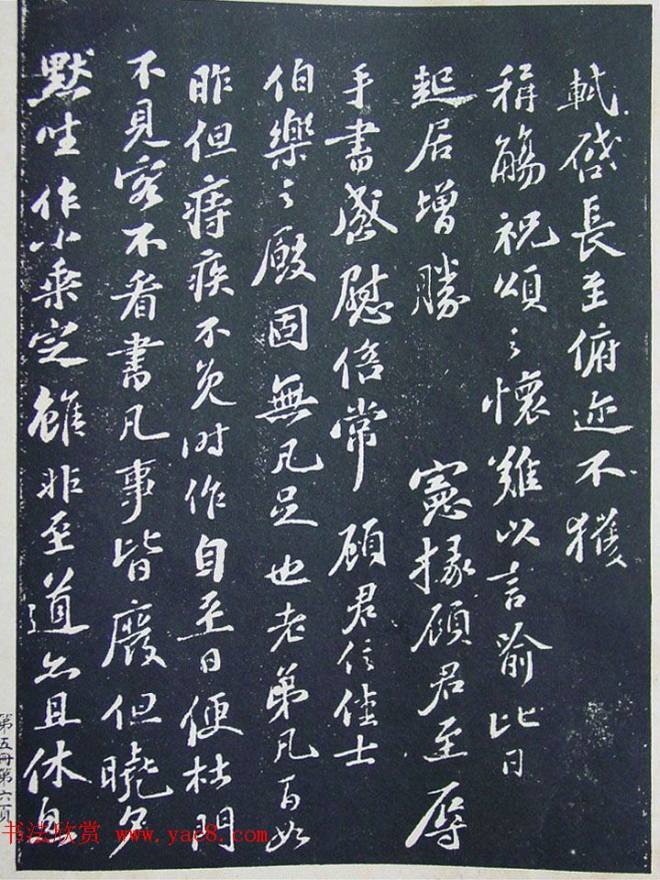 軾啓長至俯迩不獲
稱觴祝頌之懷難以言喻比日
起居增勝 憲掾顧君至辱
手書感慰倍常 顧君信佳士
伯樂之廐固無凡足也老弟凡百如
昨但痔疾不免時作自至日便杜門
不見客不看書凡事皆廢但曉夕
默坐作小乘定雖非至道亦且休息
第五册第六頁
书法欣赏 www.yac8.com